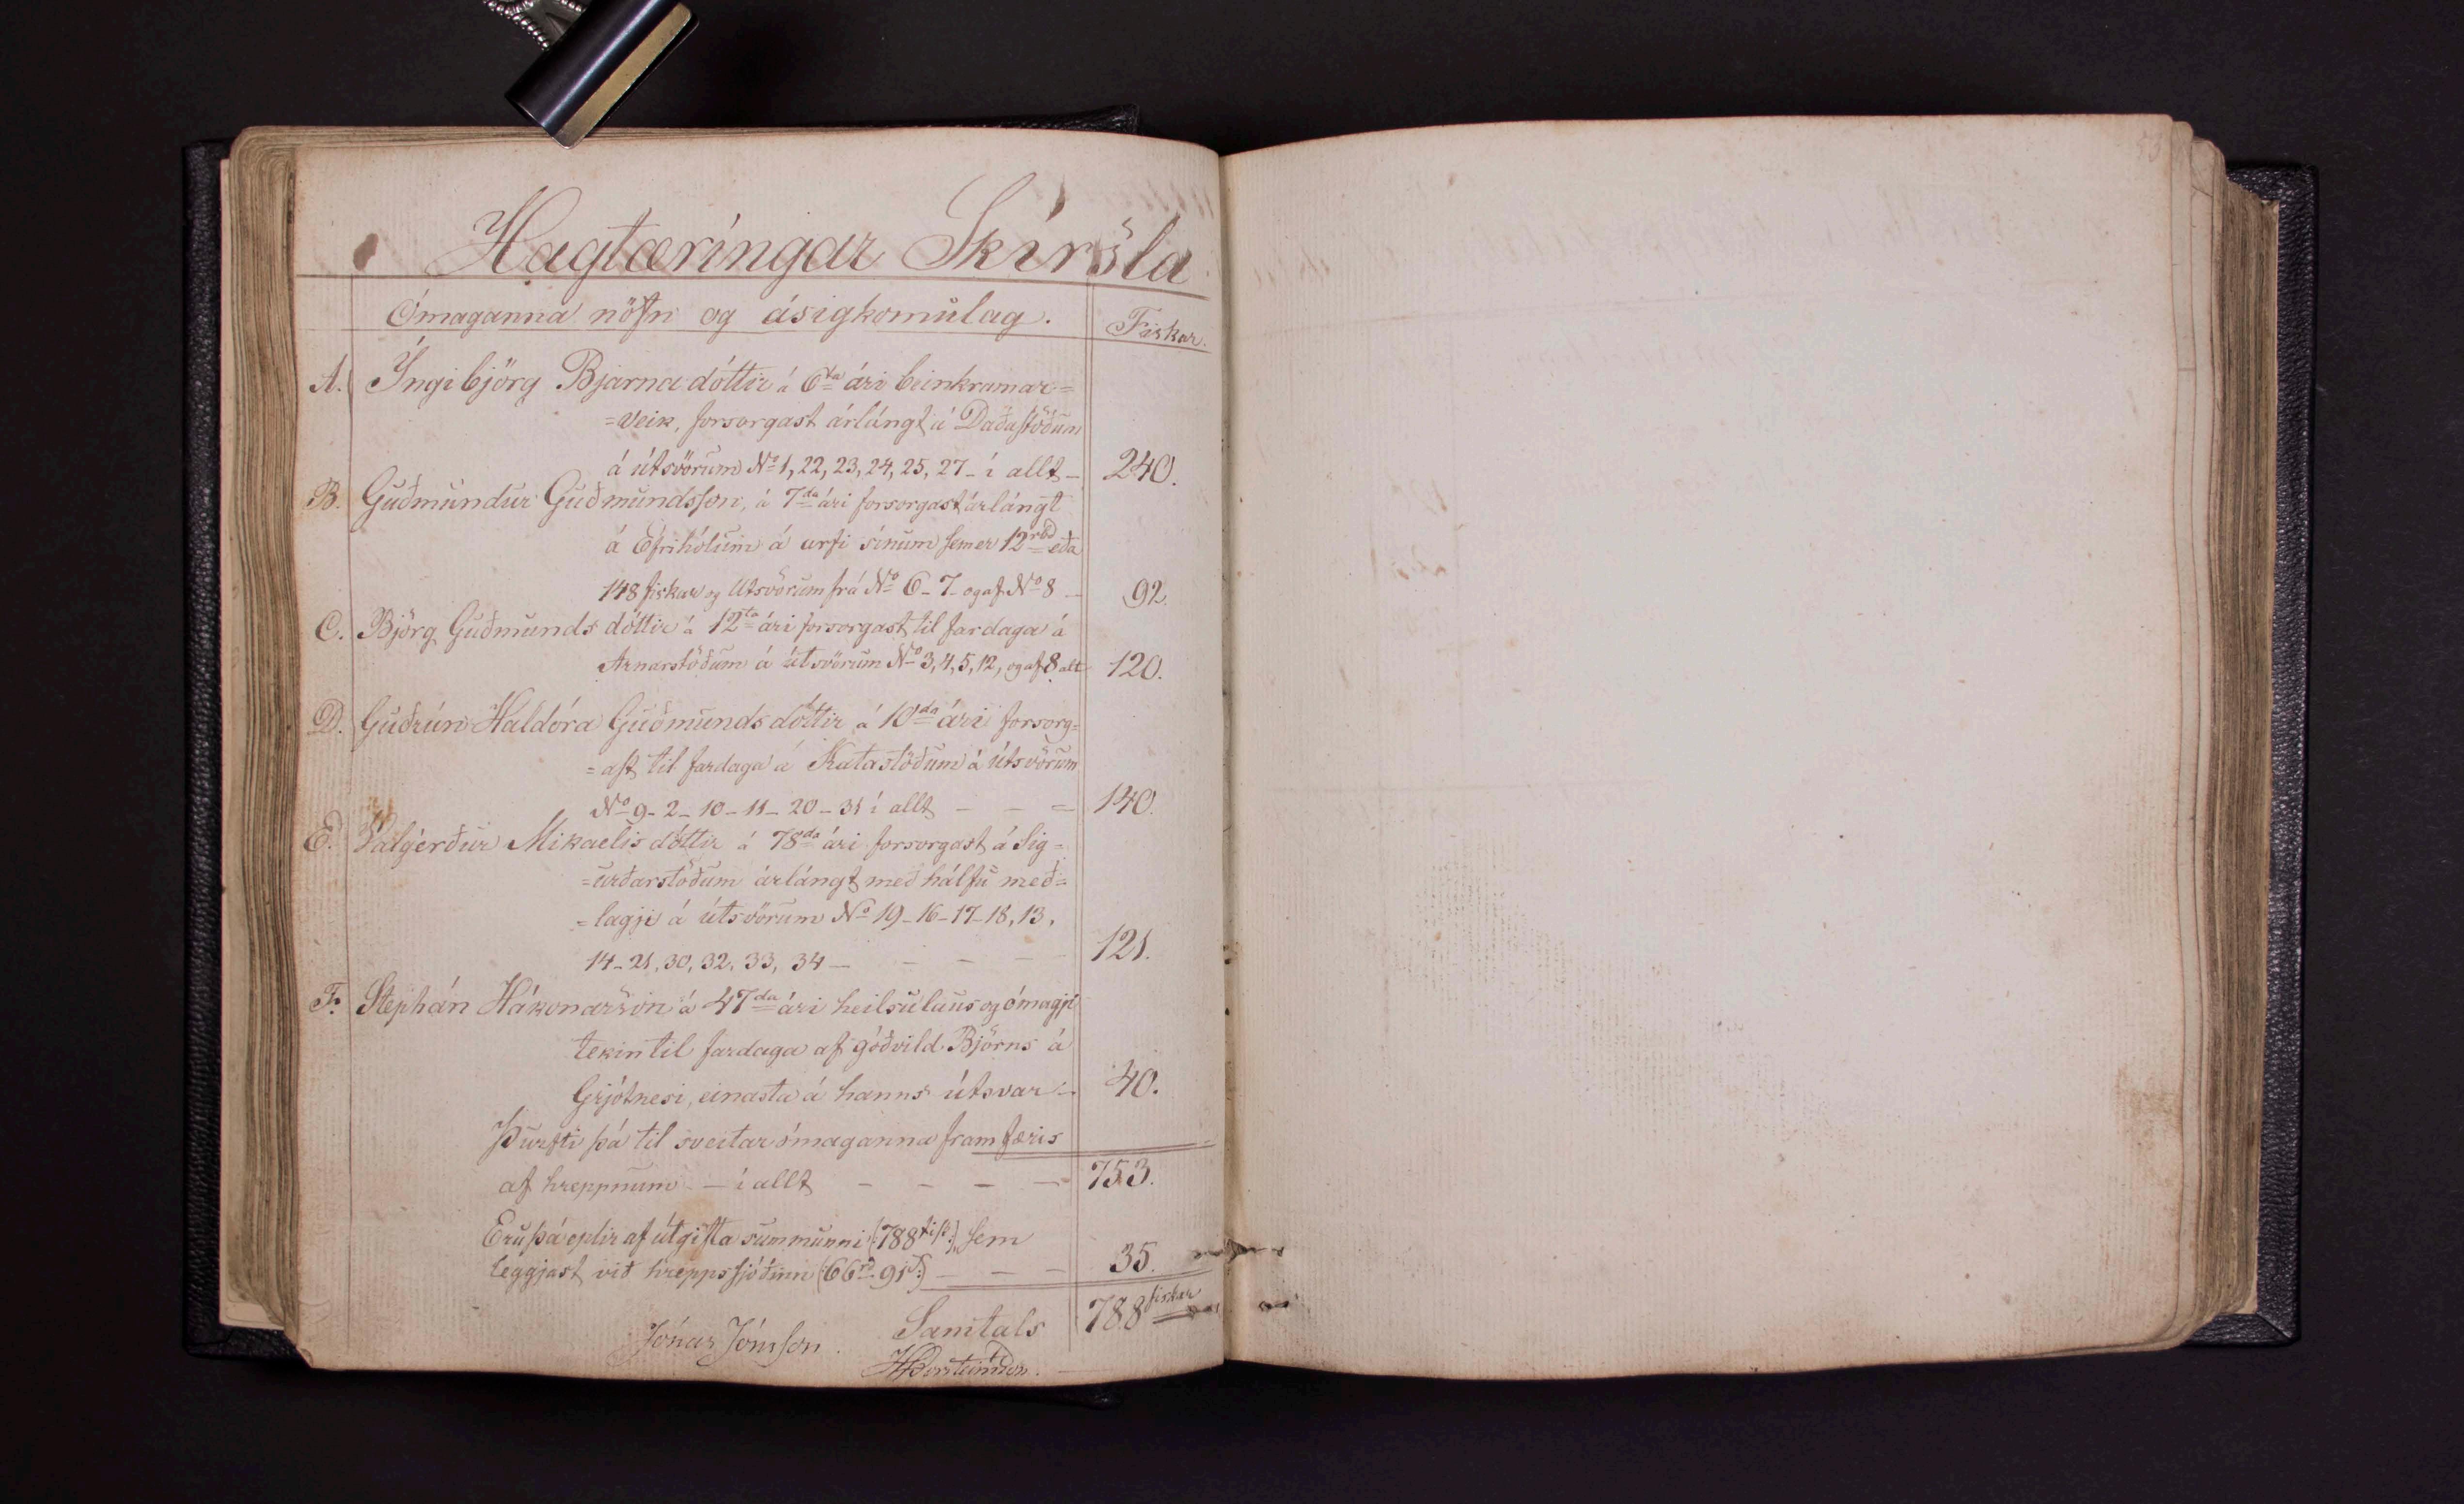 Hagtæríngar Skírsla
Ómaganna nöfn og ásigkomulag. Fiskar.
A. Íngibjörg Bjarnadóttir á 6ta ári beinkramar=
=veik, forsorgast árlángt á Daðastöðum
á útsvörum No 1, 22, 23, 24, 25, 27 - í allt - 240.
B. Guðmundur Guðmundsson, á 7da ári forsorgast árlángt
á Efrihólum á arfi sínum sem er 12rbd eða
148 fiskar og Utsvörum frá No 6 - 7 - og af No 8 - 92.
C. Björg Guðmundsdóttir á 12ta ári forsorgast til fardaga á
Arnarstöðum á útsvörum No 3, 4, 5, 12, og af 8 alt 120.
D. Guðrún Haldóra Guðmundsdóttir á 10da ári forsorg=
=ast til fardaga á Katastöðum á útsvörum
No 9 - 2 - 10 - 11 - 20 - 31 í allt - - = 140.
E. Valgérður Mikaelisdóttir á 78da ári forsorgast á Sig=
=urðarstöðum árlángt með hálfu með=
=lagji á útsvörum No 19 - 16 - 17 - 18, 13,
14 - 21, 30, 32, 33, 34 - - - - 121.
F. Stephán Hákonarson á 47da ári heilsulaus og ómagji
tekin til fardaga af góðvild Björns á
Grjótnesi, einasta á hanns útsvar - 40.
Þurfti þá til sveitarómaganna framfæris
af hreppnum - í allt - - - - 753.
Eru þá eptir af útgifta summunni (: 788 fisk :) sem
leggjast við hreppssjóðinn (: 66rd 91s :) - - - 35.
Samtals 788 fiskar
Jónas Jónsson.
HÞorsteinsson.
53